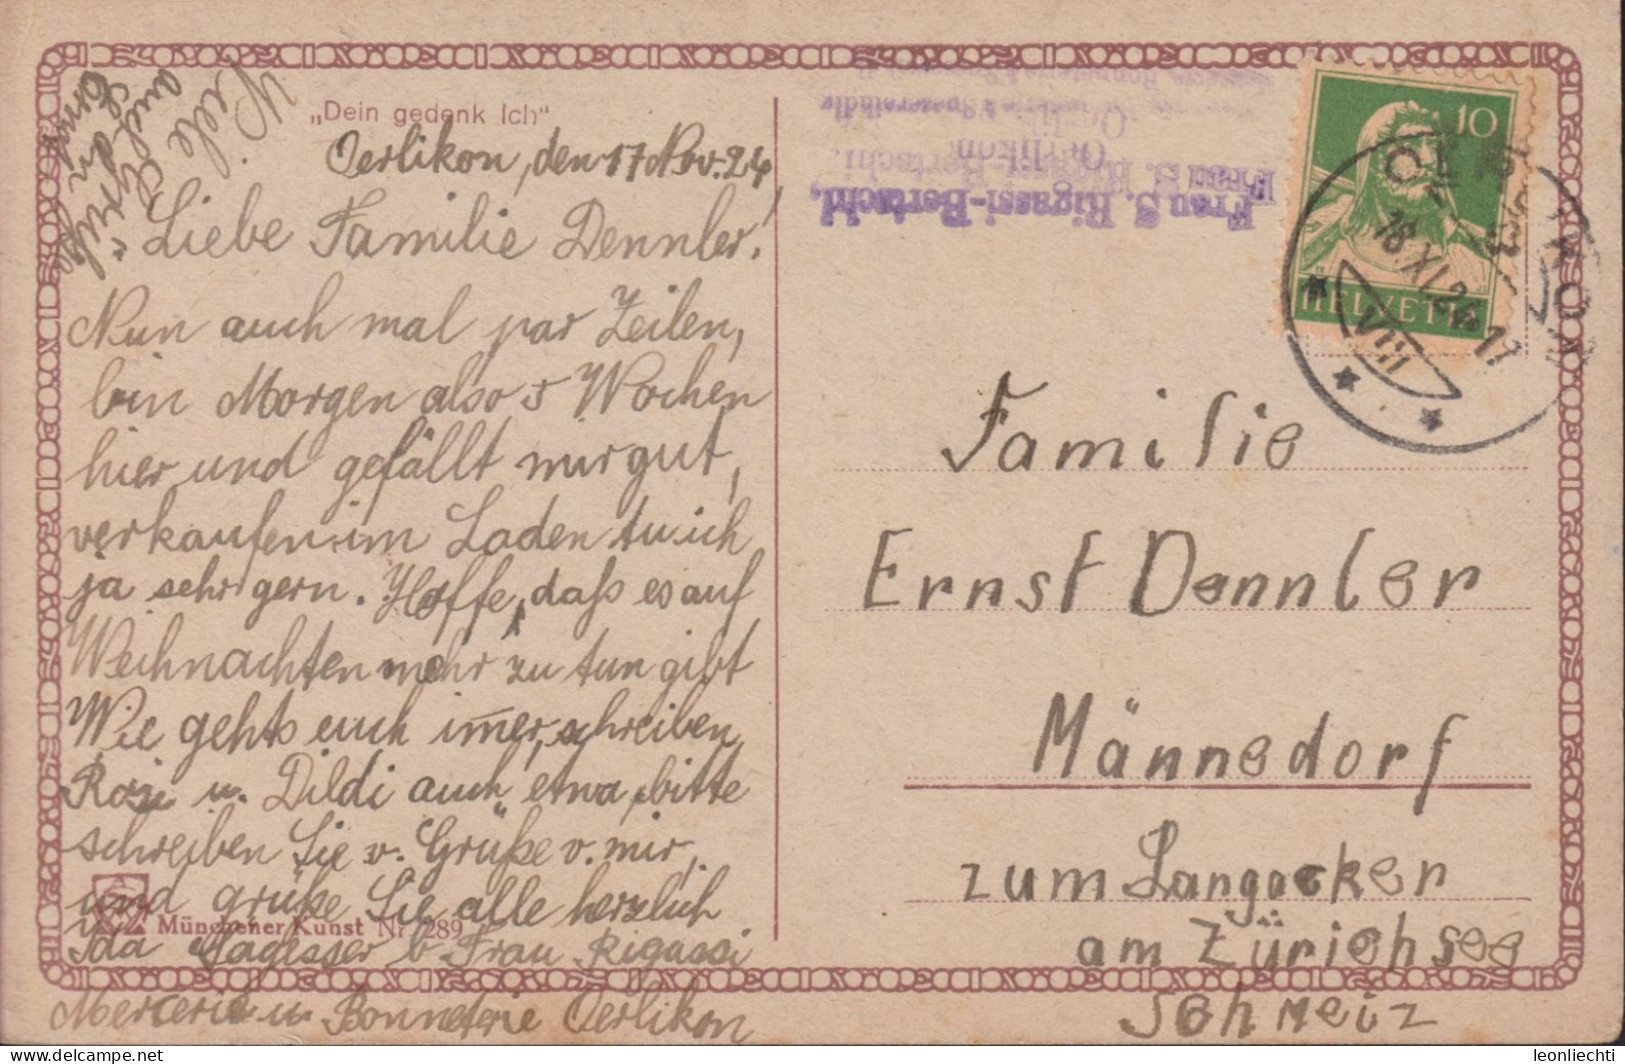 „Dein gedenk Ich"
Oerlikon, den 17 Nov. 24
Liebe Familie Dennler!
Nun auch mal par Zeilen,
bin Morgen also 5 Wochen
hier und gefällt mir gut,
verkaufen im Laden tu ich
ja sehr gern. Hoffe, daß es auf
Weihnachten mehr zu tun gibt
Wie gehts euch immer, schreiben
Rosi u. Dildi auch etwa, bitte
schreiben Sie v. Grüße v. mir,
und grüße Sie alle herzlich
Ida Hagesser b Frau Rigassi
Mercerie u Bonneterie Oerlikon
Viele Grüße
auch an
Ernst
Münchener Kunst Nr. 289
Frau S. Rigassi-Bertschi,
Oerlikon
10
HELVETIA
18.XI.24-17
VIII
Familie
Ernst Dennler
Männedorf
zum Langacker
am Zürichsee
Schweiz
leonliechti